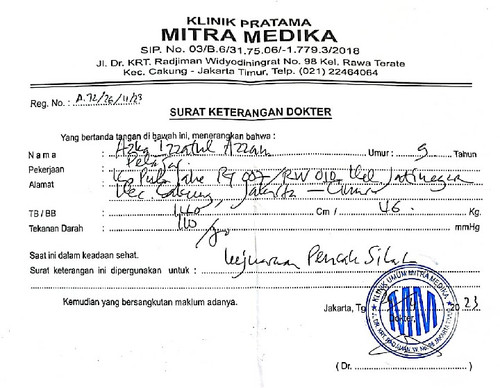 KLINIK PRATAMA
MITRA MEDIKA
SIP. No. 03/B.6/31.75.06/-1.779.3/2018
Jl. Dr. KRT. Radjiman Widyodiningrat No. 98 Kel. Rawa Terate
Kec. Cakung - Jakarta Timur, Telp. (021) 22464064
Reg. No. : A.72/26/11/23
SURAT KETERANGAN DOKTER
Yang bertanda tangan di bawah ini, menerangkan bahwa :
Nama : Azka Izzatul Azzan Umur : 9 Tahun
Pekerjaan : Pelajar
Alamat : Kp Pulo Jahe RT 007/RW 010 Kel Jatinegara
Kec. Cakung, Jakarta - Timur
TB / BB : 140 Cm / 46 Kg.
Tekanan Darah : 110/80 mmHg
Saat ini dalam keadaan sehat.
Surat keterangan ini dipergunakan untuk : Kejuaraan Pencak Silat
Kemudian yang bersangkutan maklum adanya.
Jakarta, Tg 2023
KLINIK UMUM MITRA MEDIKA
Dokter,
(Dr. )